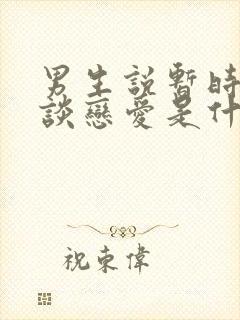 男生說暫時
談戀愛是什
祝東偉